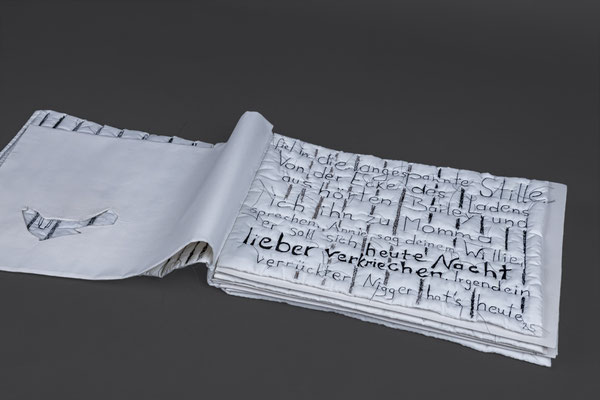 fiel in die angespannte Stille
Von der Ecke des Ladens
aus hörten Bailey und
ich ihn Momma
sprechen. Annie, sag deinem Willie,
er soll sich heute Nacht
lieber verkriechen. Irgendein
verrückter Nigger hat's heute
25